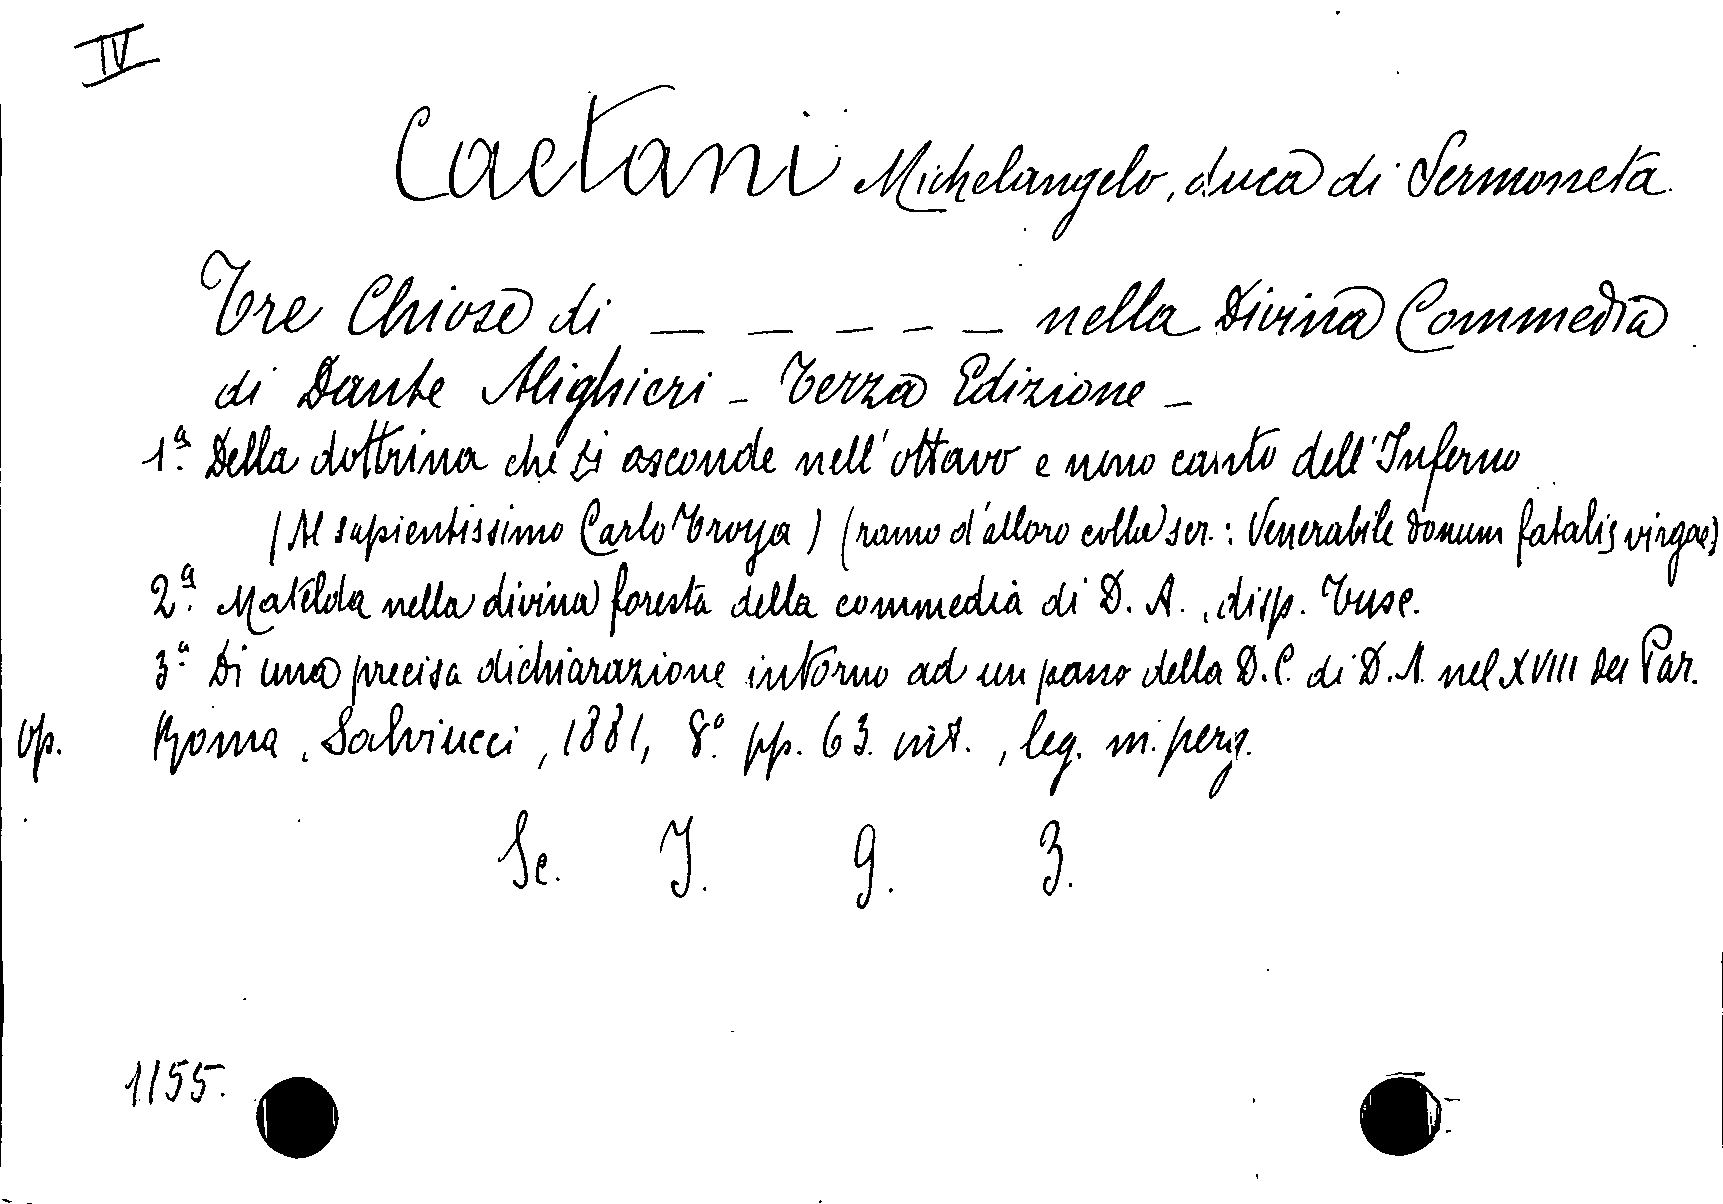 IV
Caetani Michelangelo, duca di Sermoneta.
Tre Chiose di _ _ _ _ _ nella Divina Commedia
di Dante Alighieri - Terza Edizione -
1ª. Della dottrina che si asconde nell'ottavo e nono canto dell'Inferno
(Al sapientissimo Carlo Troya) (ramo d'alloro colla scr.: Venerabile donum fatalis virgae)
2ª. Matelda nella divina foresta della commedia di D. A., disp. Tusc.
3ª Di una precisa dichiarazione intorno ad un passo della D. C. di D. A. nel XVIII del Par.
Op. Roma, Salviucci, 1881, 8º. pp. 63. int., leg. m. perg.
Sc. I. 9. 3.
1155.